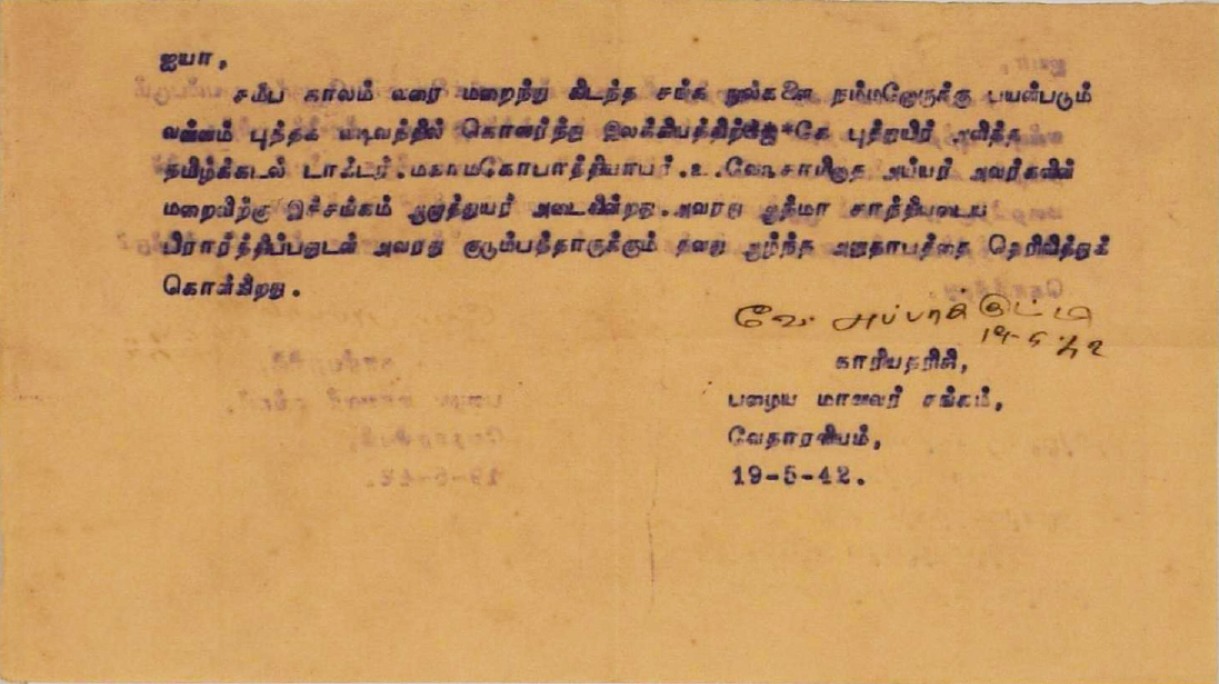 ஐயா,
சமீப காலம் வரை மறைந்து கிடந்த சங்க நூல்களை நம்மனோருக்கு பயன்படும்
வண்ணம் புத்தக வடிவத்தில் கொணர்ந்து இலக்கியத்திற்கே புத்துயிர் அளித்த
தமிழ்க்கடல் டாக்டர்.மகாமகோபாத்தியாயர்.உ.வே.சாமிநாத அய்யர் அவர்களின்
மறைவிற்கு இச்சங்கம் ஆறாத்துயர் அடைகின்றது.அவரது ஆத்மா சாந்தியடைய
பிரார்த்திப்பதுடன் அவரது குடும்பத்தாருக்கும் தனது ஆழ்ந்த அனுதாபத்தை தெரிவித்துக்
கொள்கிறது.
வே. அப்பாக்குட்டி
19-5-42
காரியதரிசி,
பழைய மாணவர் சங்கம்,
வேதாரணியம்,
19-5-42.